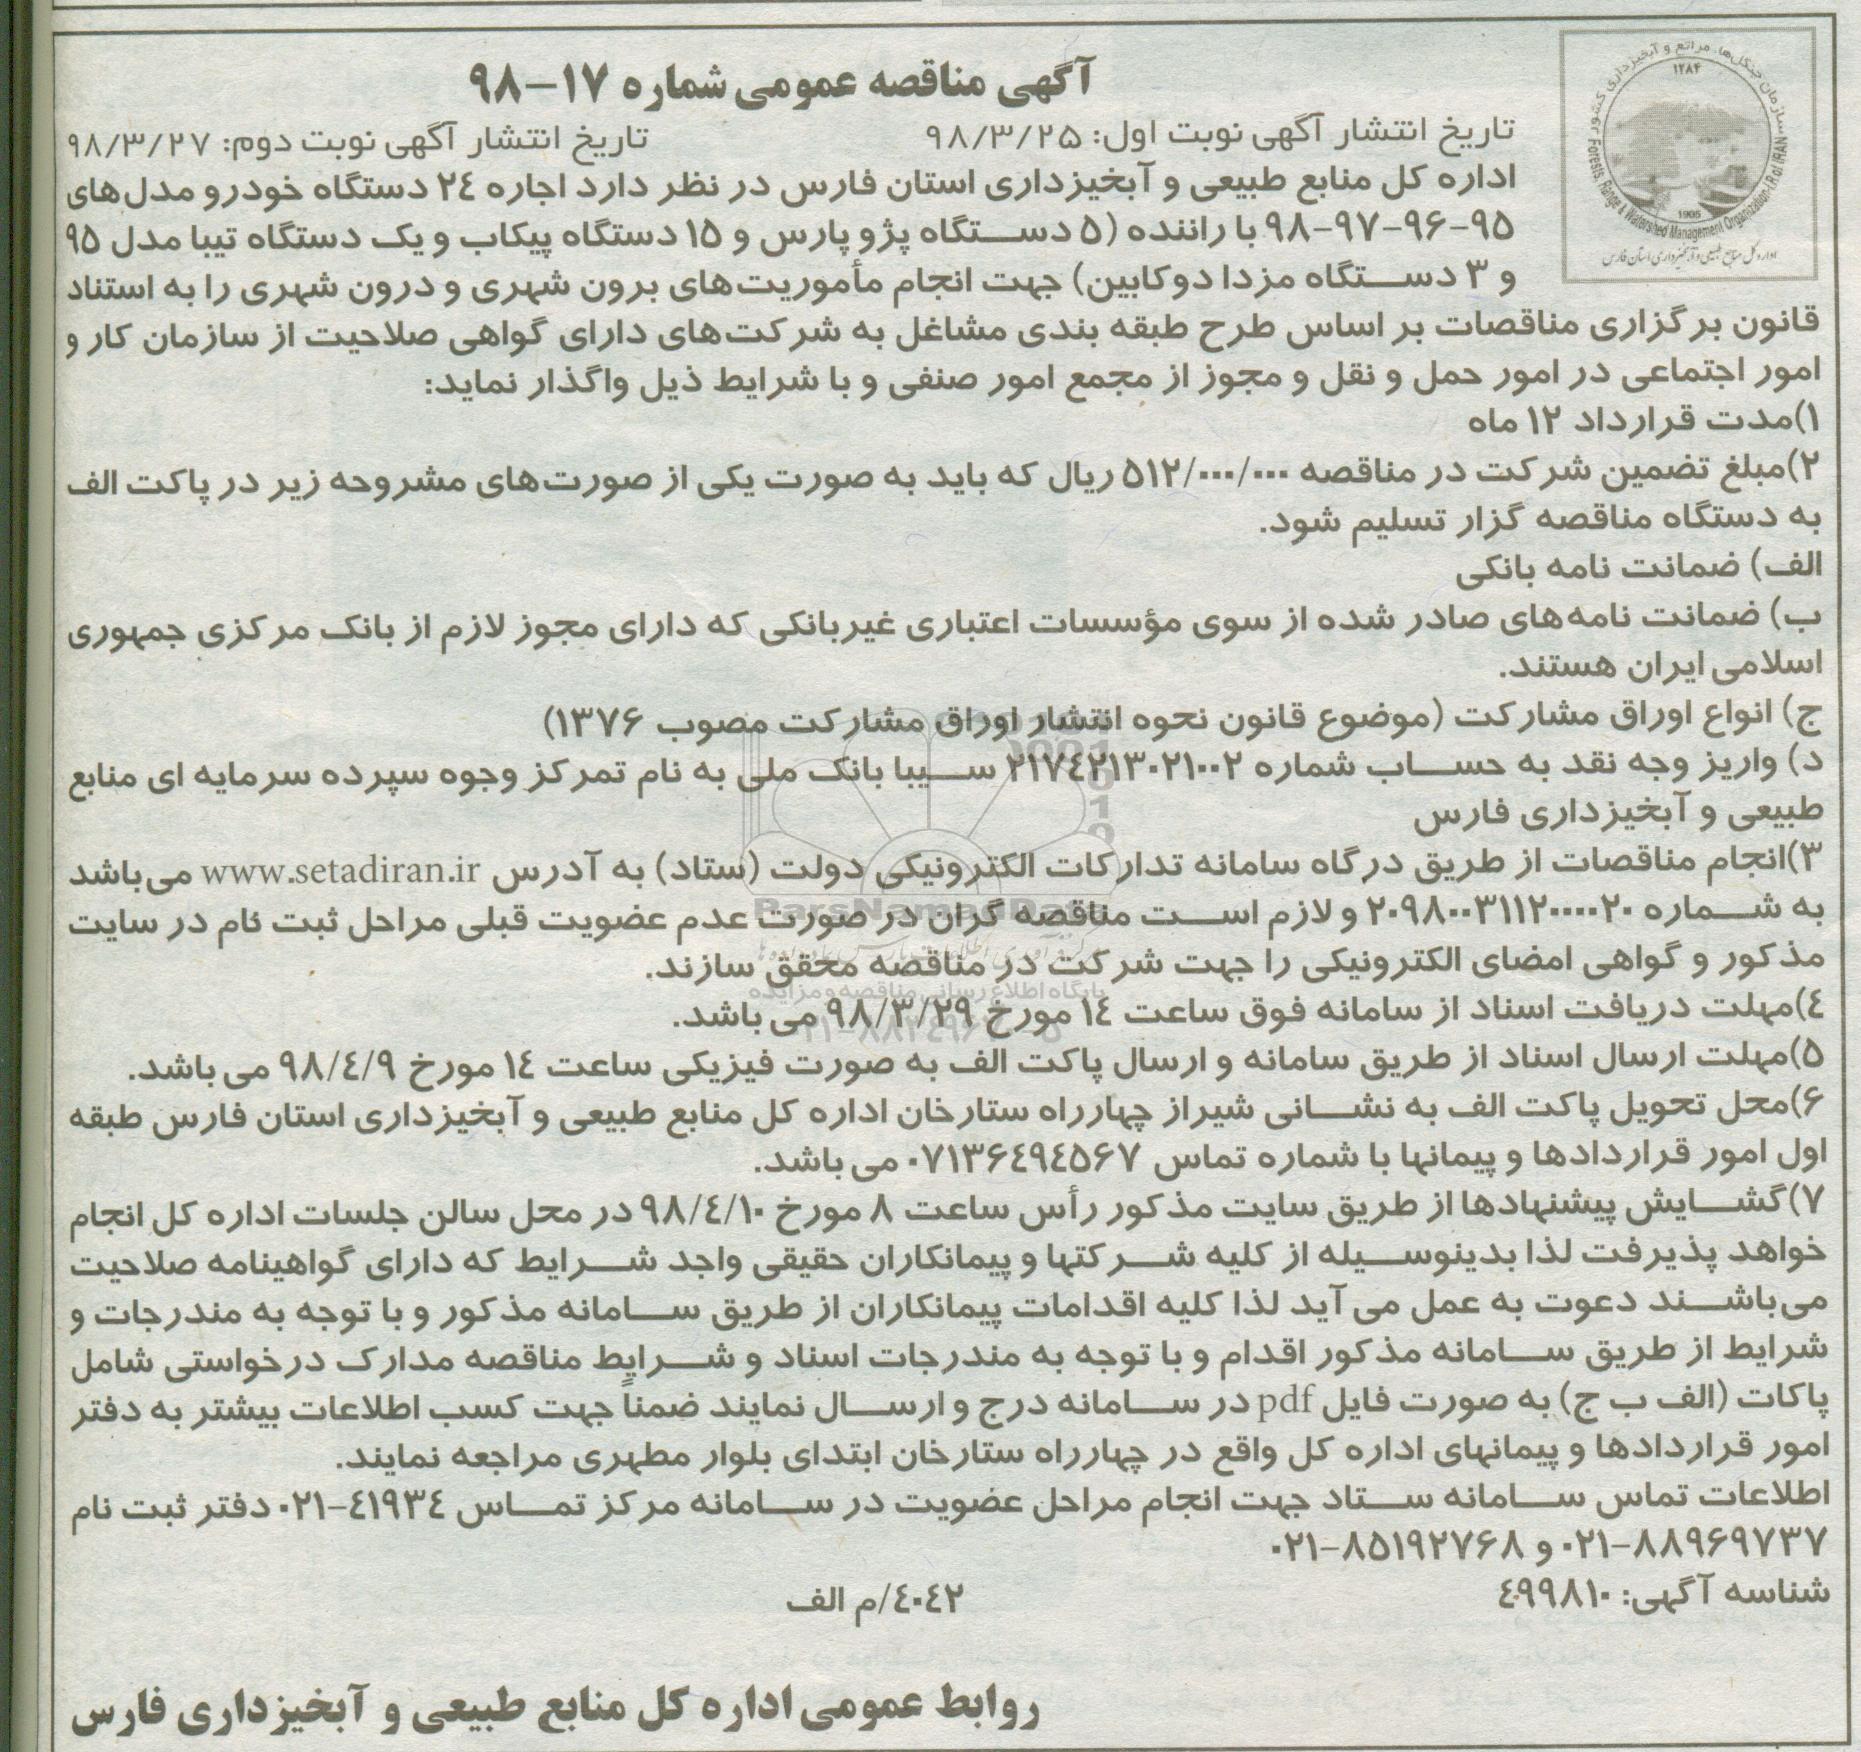 سازمان جنگل‌ها، مراتع و آبخیزداری کشور
۱۲۸۴
Forests, Range & Watershed Management Organization I.R of IRAN
1905
اداره کل منابع طبیعی و آبخیزداری استان فارس
آگهی مناقصه عمومی شماره ۱۷-۹۸
تاریخ انتشار آگهی نوبت اول: ۹۸/۳/۲۵ تاریخ انتشار آگهی نوبت دوم: ۹۸/۳/۲۷
اداره کل منابع طبیعی و آبخیزداری استان فارس در نظر دارد اجاره ۲٤ دستگاه خودرو مدل‌های
۹۵-۹۶-۹۷-۹۸ با راننده (۵ دستگاه پژو پارس و ۱۵ دستگاه پیکاب و یک دستگاه تیبا مدل ۹۵
و ۳ دستگاه مزدا دوکابین) جهت انجام مأموریت‌های برون شهری و درون شهری را به استناد
قانون برگزاری مناقصات بر اساس طرح طبقه بندی مشاغل به شرکت‌های دارای گواهی صلاحیت از سازمان کار و
امور اجتماعی در امور حمل و نقل و مجوز از مجمع امور صنفی و با شرایط ذیل واگذار نماید:
۱)مدت قرارداد ۱۲ ماه
۲)مبلغ تضمین شرکت در مناقصه ۵۱۲/۰۰۰/۰۰۰ ریال که باید به صورت یکی از صورت‌های مشروحه زیر در پاکت الف
به دستگاه مناقصه گزار تسلیم شود.
الف) ضمانت نامه بانکی
ب) ضمانت نامه‌های صادر شده از سوی مؤسسات اعتباری غیربانکی که دارای مجوز لازم از بانک مرکزی جمهوری
اسلامی ایران هستند.
ج) انواع اوراق مشارکت (موضوع قانون نحوه انتشار اوراق مشارکت مصوب ۱۳۷۶)
د) واریز وجه نقد به حساب شماره ۲۱۷٤۲۱۳۰۲۱۰۰۲ سیبا بانک ملی به نام تمرکز وجوه سپرده سرمایه ای منابع
طبیعی و آبخیزداری فارس
۳)انجام مناقصات از طریق درگاه سامانه تدارکات الکترونیکی دولت (ستاد) به آدرس www.setadiran.ir می‌باشد
به شماره ۲۰۹۸۰۰۳۱۱۲۰۰۰۰۲۰ و لازم است مناقصه گران در صورت عدم عضویت قبلی مراحل ثبت نام در سایت
مذکور و گواهی امضای الکترونیکی را جهت شرکت در مناقصه محقق سازند.
٤)مهلت دریافت اسناد از سامانه فوق ساعت ۱٤ مورخ ۹۸/۳/۲۹ می باشد.
۵)مهلت ارسال اسناد از طریق سامانه و ارسال پاکت الف به صورت فیزیکی ساعت ۱٤ مورخ ۹۸/٤/۹ می باشد.
۶)محل تحویل پاکت الف به نشانی شیراز چهارراه ستارخان اداره کل منابع طبیعی و آبخیزداری استان فارس طبقه
اول امور قراردادها و پیمانها با شماره تماس ۰۷۱۳۶٤۹٤۵۶۷ می باشد.
۷)گشایش پیشنهادها از طریق سایت مذکور رأس ساعت ۸ مورخ ۹۸/٤/۱۰ در محل سالن جلسات اداره کل انجام
خواهد پذیرفت لذا بدینوسیله از کلیه شرکتها و پیمانکاران حقیقی واجد شرایط که دارای گواهینامه صلاحیت
می‌باشند دعوت به عمل می آید لذا کلیه اقدامات پیمانکاران از طریق سامانه مذکور و با توجه به مندرجات و
شرایط از طریق سامانه مذکور اقدام و با توجه به مندرجات اسناد و شرایط مناقصه مدارک درخواستی شامل
پاکات (الف ب ج) به صورت فایل pdf در سامانه درج و ارسال نمایند ضمناً جهت کسب اطلاعات بیشتر به دفتر
امور قراردادها و پیمانهای اداره کل واقع در چهارراه ستارخان ابتدای بلوار مطهری مراجعه نمایند.
اطلاعات تماس سامانه ستاد جهت انجام مراحل عضویت در سامانه مرکز تماس ٤۱۹۳٤-۰۲۱ دفتر ثبت نام
۸۸۹۶۹۷۳۷-۰۲۱ و ۸۵۱۹۲۷۶۸-۰۲۱
شناسه آگهی: ٤۹۹۸۱۰ ٤۰٤۲/م الف
روابط عمومی اداره کل منابع طبیعی و آبخیزداری فارس
ParsNamadData
پایگاه اطلاع رسانی مناقصه و مزایده